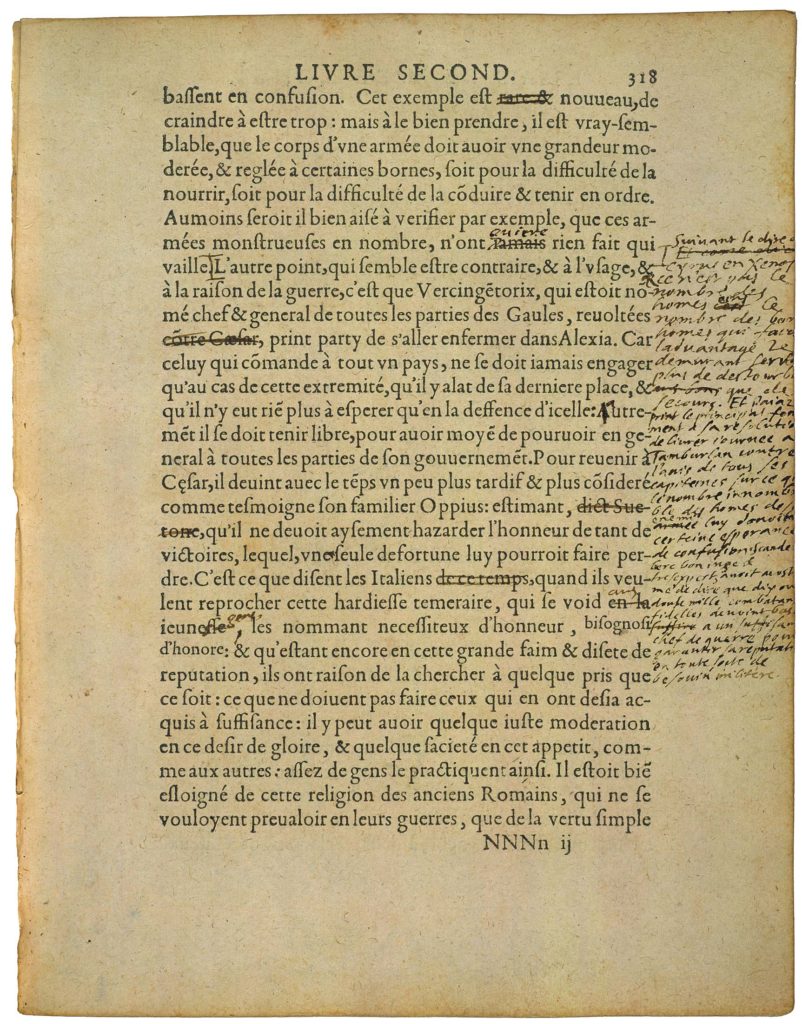 LIVRE SECOND. 318
baſſent en confuſion. Cet exemple eſt rare & nouueau, de
craindre à eſtre trop : mais à le bien prendre, il eſt vray-ſem-
blable, que le corps d'vne armée doit auoir vne grandeur mo-
derée, & reglée à certaines bornes, ſoit pour la difficulté de la
nourrir, ſoit pour la difficulté de la cõduire & tenir en ordre.
Aumoins ſeroit il bien aiſé à verifier par exemple, que ces ar-
guiere
mées monſtrueuſes en nombre, n'ont iamais rien fait qui
vaille. L'autre point, qui ſemble eſtre contraire, & à l'vſage, &
à la raiſon de la guerre, c'eſt que Vercingẽtorix, qui eſtoit nõ-
mé chef & general de toutes les parties des Gaules, reuoltées
cõtre Cæſar, print party de s'aller enfermer dans Alexia. Car
celuy qui cõmande à tout vn pays, ne ſe doit iamais engager
qu'au cas de cette extremité, qu'il y alat de ſa derniere place, &
qu'il n'y eut riẽ plus à eſperer qu'en la deffence d'icelle: Autre-
mẽt il ſe doit tenir libre, pour auoir moyẽ de pouruoir en ge-
neral à toutes les parties de ſon gouuernemẽt. Pour reuenir à
Cęſar, il deuint auec le tẽps vn peu plus tardif & plus cõſideré
comme teſmoigne ſon familier Oppius: eſtimant, dict Sue-
tone, qu'il ne deuoit ayſement hazarder l'honneur de tant de
victoires, lequel, vne ſeule defortune luy pourroit faire per-
dre. C'eſt ce que diſent les Italiens de ce temps, quand ils veu-
lent reprocher cette hardieſſe temeraire, qui ſe void en la
aus
ieuneſſe gens, les nommant neceſſiteux d'honneur, bisognosi
d'honore: & qu'eſtant encore en cette grande faim & diſete de
reputation, ils ont raiſon de la chercher à quelque pris que
ce ſoit: ce que ne doiuent pas faire ceux qui en ont deſia ac-
quis à ſuffiſance: il y peut auoir quelque iuſte moderation
en ce deſir de gloire, & quelque ſacieté en cet appetit, com-
me aux autres: aſſez de gens le practiquent ainſi. Il eſtoit biẽ
eſloigné de cette religion des anciens Romains, qui ne ſe
vouloyent preualoir en leurs guerres, que de la vertu ſimple
NNNn ij
Suivant le dire
Cyrus en Xenop
ce n'est pas le
nombre des
homes le
nombre des bon
homes qui face
l'advantage Le
demurant
plus de destour
que de
secours. Et Baiaz
print le principal fon
ment a sa resolution
de livrer journee a
Tamburlan contre
l'avis de tous ses
capitenes sur ce q
le nombre innomb
ble des homes de s
enemi luy donoit
certeine esperance
de confusion Scande
bere bon juge &
tresexpert avoit
me de dire que dix ou
douse mille combatan
fidelles devoint bas
a un suffisan
chef de guerre pour
garantir sa reputati
en toute sorte de
besouin militere.